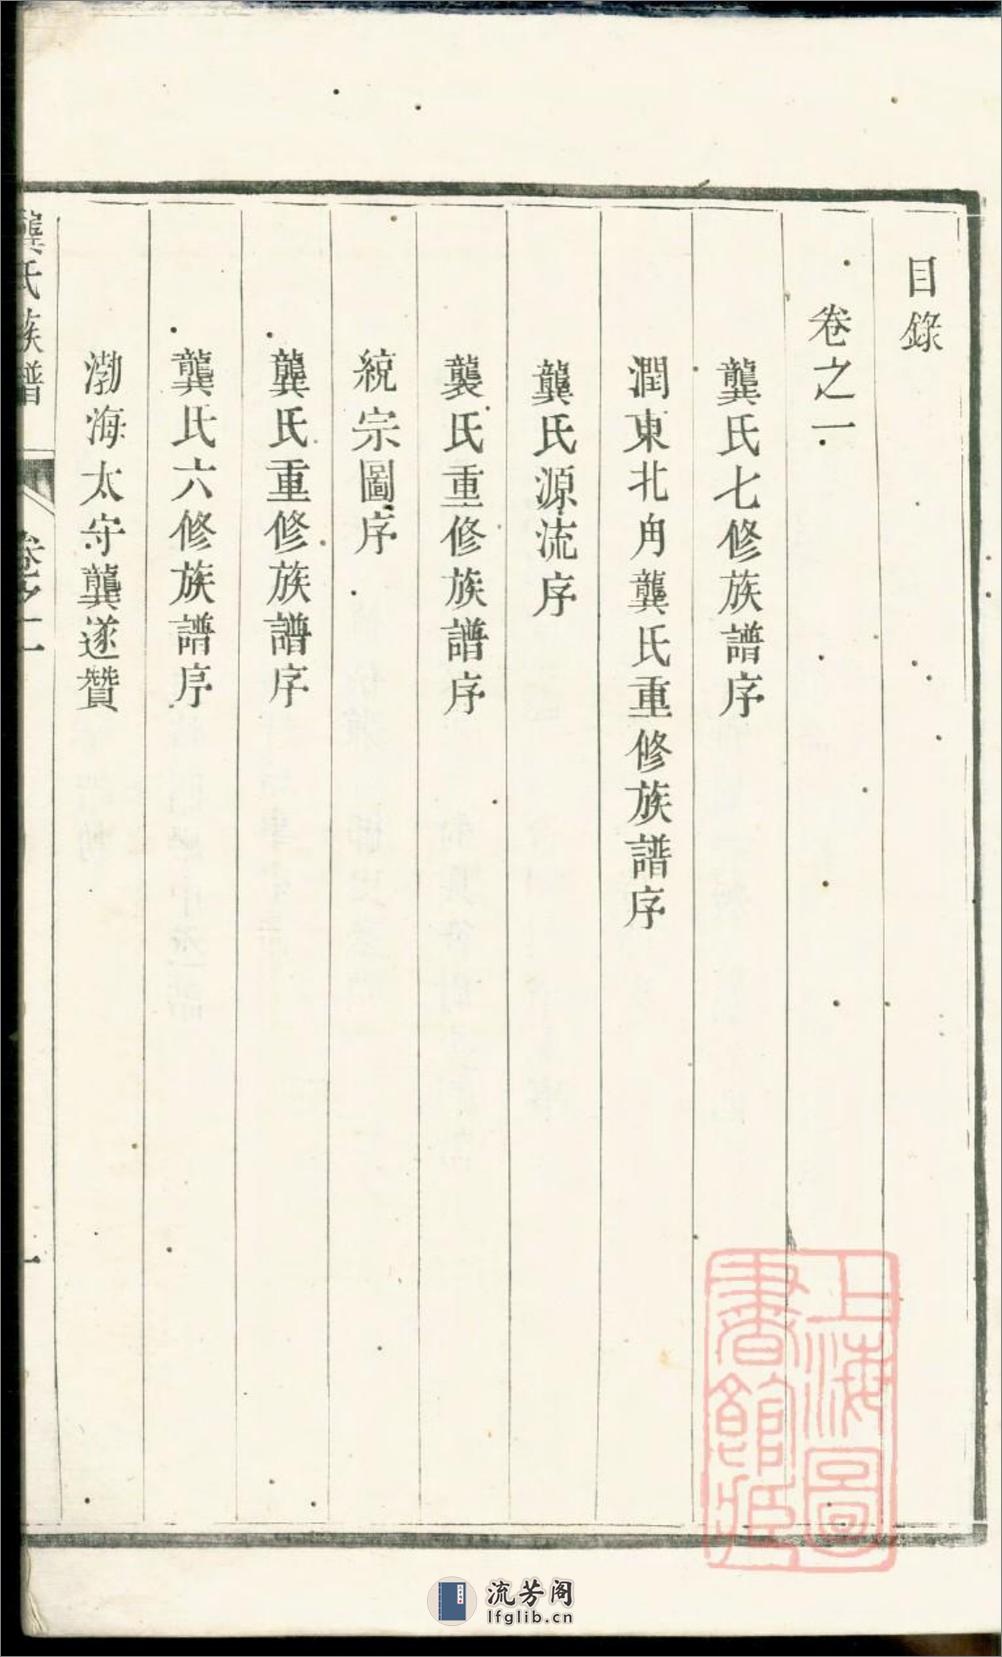 目錄
卷之一
龔氏七修族譜序
潤東北角龔氏重修族譜序
龔氏源流序
襲氏重修族譜序
統宗圖序
龔氏重修族譜序
龔氏六修族譜序
渤海太守龔遂贊
龔氏族譜
卷之一
一
上海圖書館藏
流芳阁
lfglib.cn